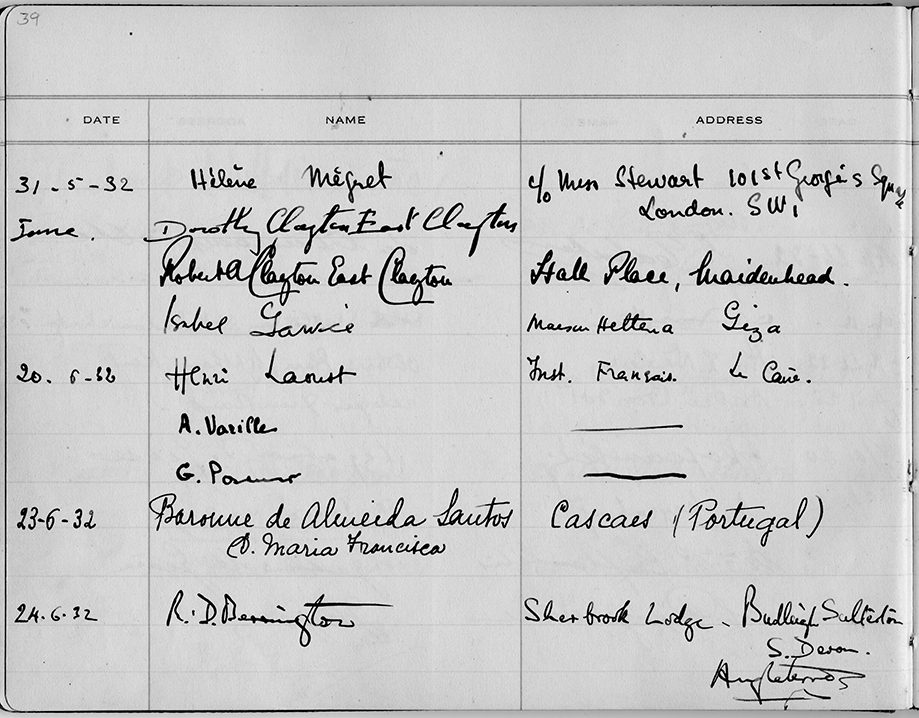 39
DATE NAME ADDRESS
31-5-32 Hélène Mégret c/o Miss Stewart 101 St George's Square
London. SW1
June. Dorothy Clayton East Clayton
Robert A Clayton East Clayton Hall Place, Maidenhead.
Isabel Giza
20. 6-32 Henri Laoust Inst. Français. Le Caire.
A. Varille
G. Posener
23-6-32 Baronne de Almeida Santos Cascaes (Portugal)
D. Maria Francisca
24.6.32 R. D. Bennington Sherbrook Lodge - Budleigh Salterton
S. Devon.
Angleterre